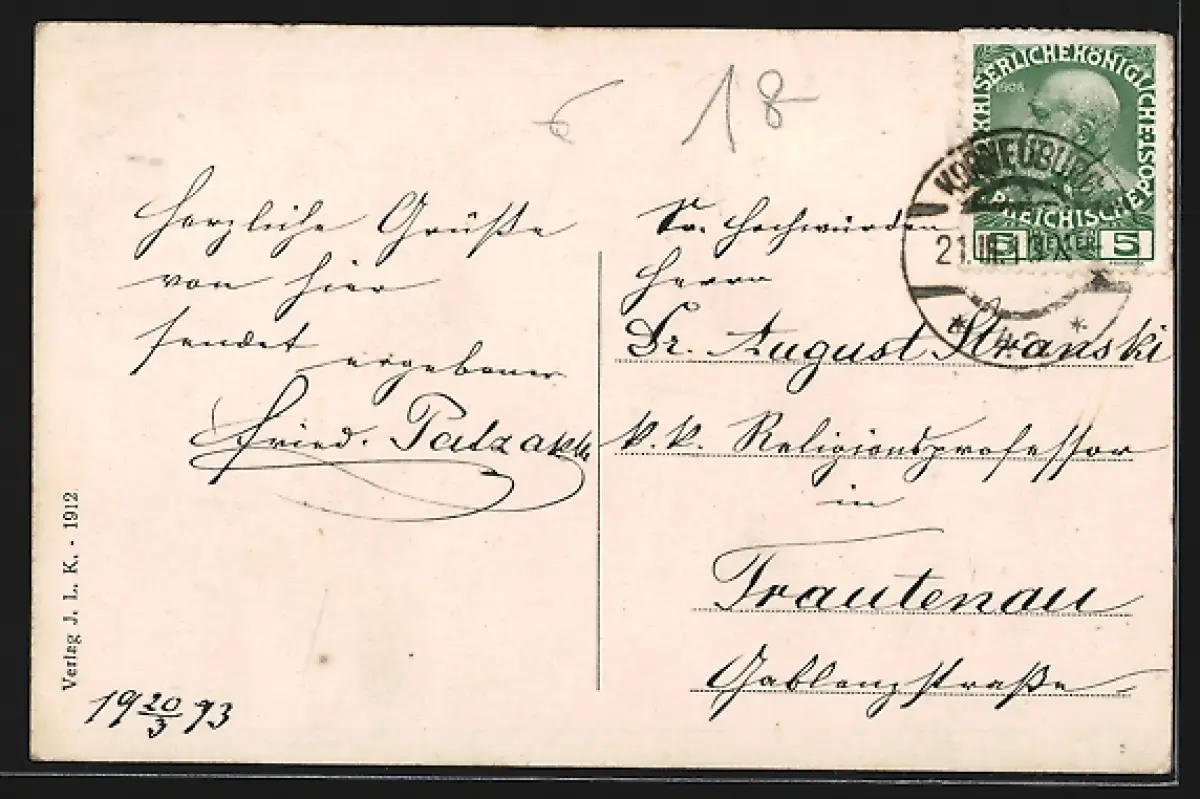 6 18
KAISERLICHE KÖNIGLICHE ÖSTERREICHISCHE POST
1908
5 HELLER 5
KORNEUBURG
21.III.13
* 4a *
Herzliche Grüße
von hier
sendet
ergebener
Fried. Patzakh
Sr. Hochwürden
Herrn
Dr. August Stranski
k.k. Religionsprofessor
in
Trautenau
Gablenzstraße
Verlag J. L. K. - 1912
19 20/3 13